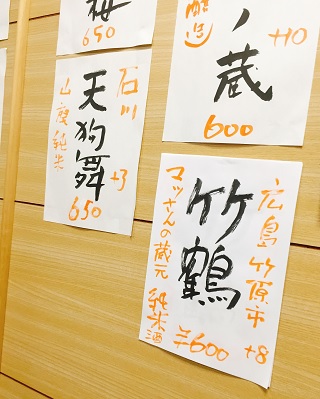 梅
650
蔵
醸造
+10
600
石川
天狗舞
山廃純米
+3
650
広島竹原市
+8
竹鶴
マッサンの蔵元
純米酒
¥600